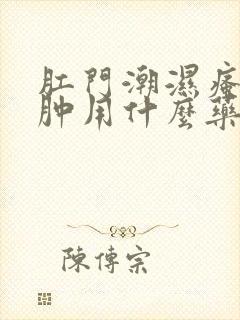 肛門潮濕瘙
肿用什麼藥
陳傳宗